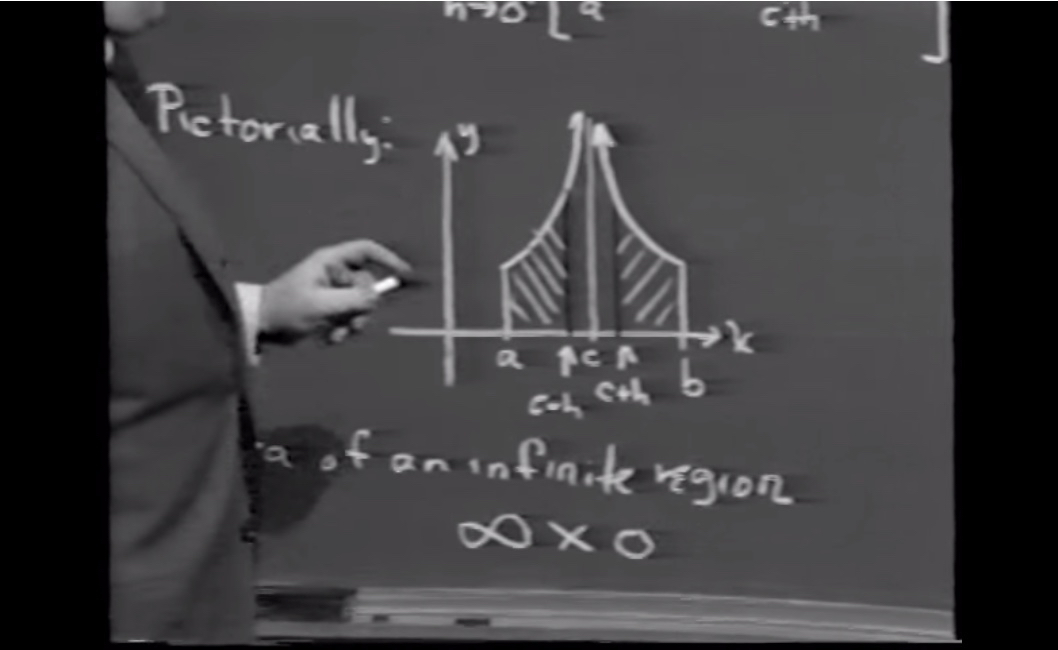 h→0 [ a c+h ]
Pictorially:
y
x
a c b
c-h c+h
a of an infinite region
∞ × 0